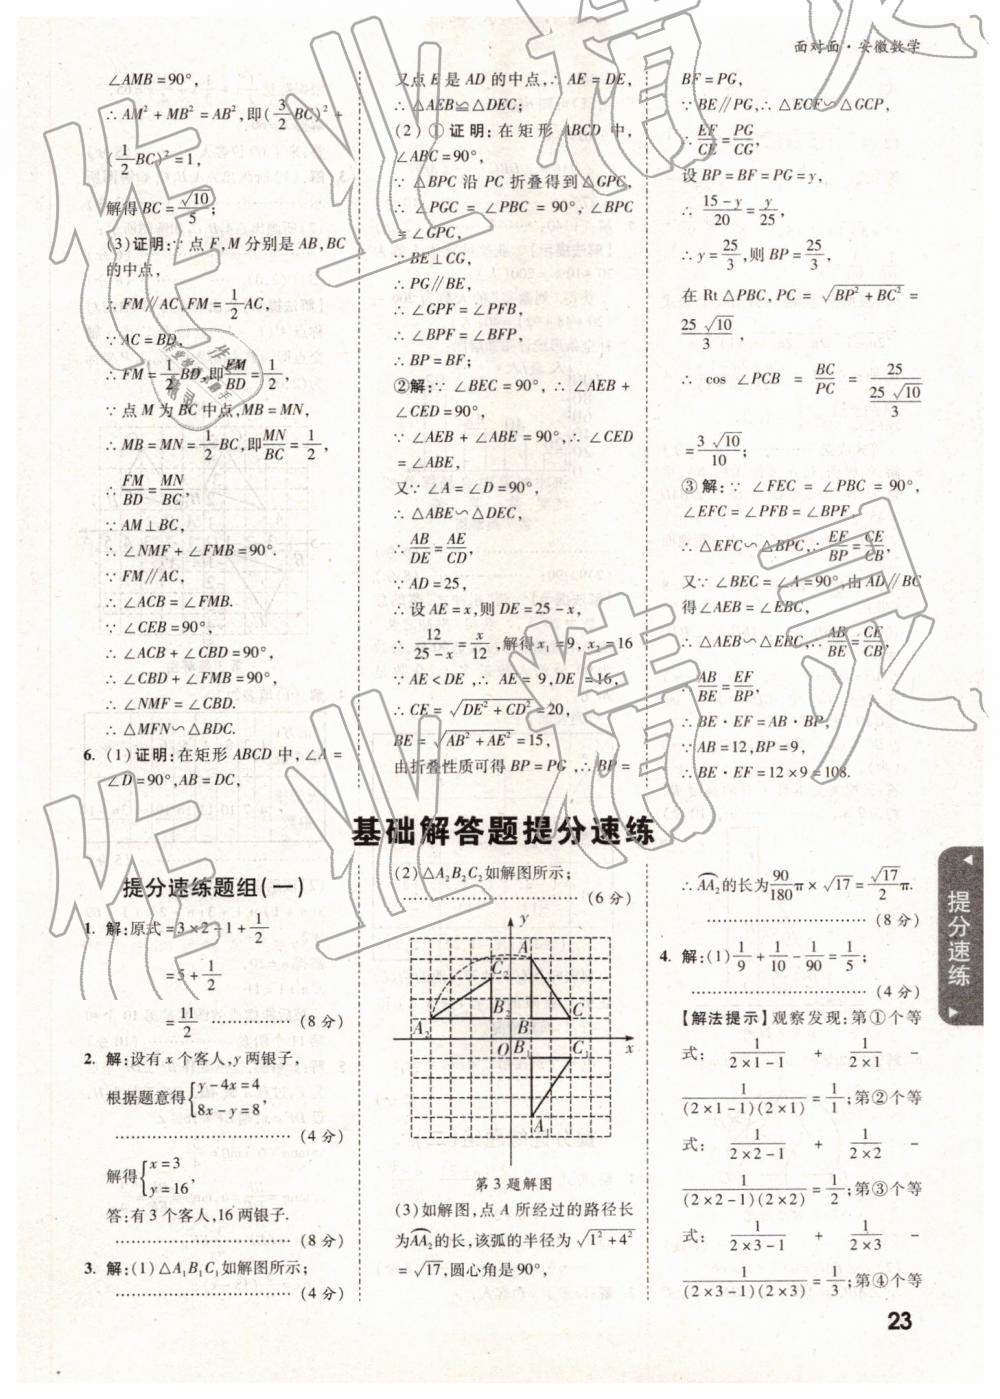 面对面·安徽数学
∠AMB=90°,
∴AM²+MB²=AB²,即(3/2 BC)²+
(1/2 BC)²=1,
解得BC=√10/5;
(3)证明:∵点F,M分别是AB,BC
的中点,
∴FM∥AC,FM=1/2 AC,
∵AC=BD,
∴FM=1/2 BD,即FM/BD=1/2,
∵点M为BC中点,MB=MN,
∴MB=MN=1/2 BC,即MN/BC=1/2,
∴FM/BD=MN/BC,
∵AM⊥BC,
∴∠NMF+∠FMB=90°.
∵FM∥AC,
∴∠ACB=∠FMB.
∵∠CEB=90°,
∴∠ACB+∠CBD=90°,
∴∠CBD+∠FMB=90°,
∴∠NMF=∠CBD.
∴△MFN∽△BDC.
6. (1)证明:在矩形ABCD中,∠A=
∠D=90°,AB=DC,
又点E是AD的中点,∴AE=DE,
∴△AEB≌△DEC;
(2)①证明:在矩形ABCD中,
∠ABC=90°,
∵△BPC沿PC折叠得到△GPC,
∴∠PGC=∠PBC=90°,∠BPC
=∠GPC,
∵BE⊥CG,
∴PG∥BE,
∴∠GPF=∠PFB,
∴∠BPF=∠BFP,
∴BP=BF;
②解:∵∠BEC=90°,∴∠AEB+
∠CED=90°,
∵∠AEB+∠ABE=90°,∴∠CED
=∠ABE,
又∵∠A=∠D=90°,
∴△ABE∽△DEC,
∴AB/DE=AE/CD,
∵AD=25,
∴设AE=x,则DE=25-x,
∴12/(25-x)=x/12,解得x₁=9,x₂=16
∵AE<DE,∴AE=9,DE=16,
∴CE=√(DE²+CD²)=20,
BE=√(AB²+AE²)=15,
由折叠性质可得BP=PG,∴BP=
BF=PG,
∵BE∥PG,∴△ECF∽△GCP,
∴EF/CE=PG/CG,
设BP=BF=PG=y,
∴(15-y)/20=y/25,
∴y=25/3,则BP=25/3,
在Rt△PBC,PC=√(BP²+BC²)=
25√10/3,
∴cos∠PCB=BC/PC=25/(25√10/3)
=3√10/10;
③解:∵∠FEC=∠PBC=90°,
∠EFC=∠PFB=∠BPF,
∴△EFC∽△BPC,∴EF/BP=CE/CB,
又∵∠BEC=∠A=90°,由AD∥BC
得∠AEB=∠EBC,
∴△AEB∽△EBC,∴AB/BE=CE/CB,
∴AB/BE=EF/BP,
∴BE·EF=AB·BP,
∵AB=12,BP=9,
∴BE·EF=12×9=108.
基础解答题提分速练
提分速练题组(一)
1. 解:原式=3×2-1+1/2
=5+1/2
=11/2 ……………(8分)
2. 解:设有x个客人,y两银子,
根据题意得{y-4x=4
8x-y=8,
……………(4分)
解得{x=3
y=16,
答:有3个客人,16两银子.
……………(8分)
3. 解:(1)△A₁B₁C₁如解图所示;
……………(4分)
(2)△A₂B₂C₂如解图所示;
……………(6分)
y
A
C₂
A₂
B₂
B
C
O
B₁
C₁
x
A₁
第3题解图
(3)如解图,点A所经过的路径长
为AA₂的长,该弧的半径为√(1²+4²)
=√17,圆心角是90°,
∴AA₂的长为90/180 π×√17=√17/2 π.
……………(8分)
4. 解:(1)1/9+1/10-1/90=1/5;
……………(4分)
【解法提示】观察发现:第①个等
式:1/(2×1-1)+1/(2×1)-
1/((2×1-1)(2×1))=1/1;第②个等
式:1/(2×2-1)+1/(2×2)-
1/((2×2-1)(2×2))=1/2;第③个等
式:1/(2×3-1)+1/(2×3)-
1/((2×3-1)(2×3))=1/3;第④个等
提分速练
23
作业精灵
作业精灵